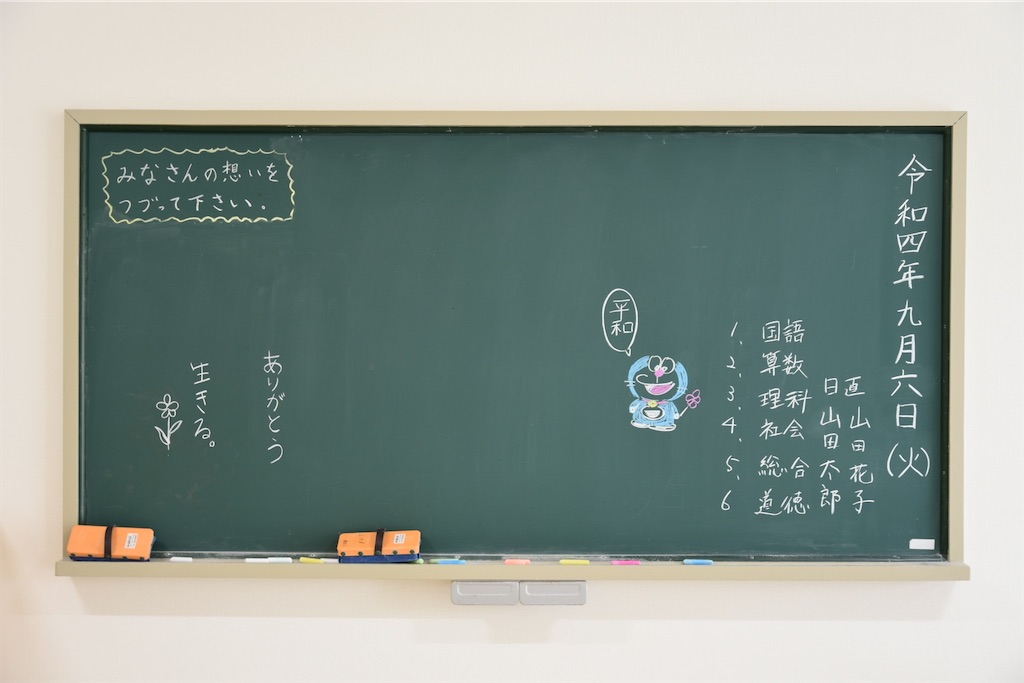 令和四年九月六日(火)
日直
山田花子
山田太郎
1. 国語
2. 算数
3. 理科
4. 社会
5. 総合
6 道徳
平和
みなさんの想いを
つづって下さい。
ありがとう
生きる。